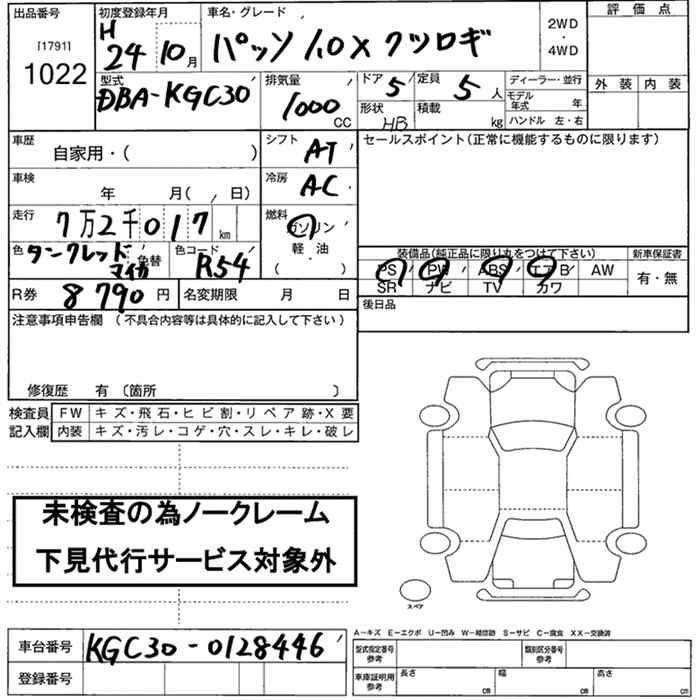 出品番号 初度登録年月 車名・グレード 2WD・4WD 評価点
[1791] H
1022 24 10月 パッソ 1.0X クツロギ
型式 排気量 ドア 定員 ディーラー・並行 外装 内装
DBA-KGC30 1000 CC 5 5人 モデル年式 年
形状 HB 積載 kg ハンドル 左・右
車歴 自家用・( ) シフト AT セールスポイント(正常に機能するものに限ります)
車検 年 月( 日) 冷房 AC
走行 7万2千017 km 燃料 ガソリン
軽・油
( )
色 色替 色コード R54 装備品(純正品に限り丸をつけて下さい) 新車保証書
マイカ PS PW ABS エアB AW 有・無
SR ナビ TV カワ
R券 8790円 名変期限 月 日 後日品
注意事項申告欄 (不具合内容等は具体的に記入して下さい)
修復歴 有 〔箇所 〕
検査員 FW キズ・飛石・ヒビ割・リペア跡・X要
記入欄 内装 キズ・汚レ・コゲ・穴・スレ・キレ・破レ
未検査の為ノークレーム
下見代行サービス対象外
スペア
車台番号 KGC30-0128446
登録番号
A−キズ E−エクボ U−凹み W−補修跡 S−サビ C−腐食 XX−交換済
型式指定番号 参考 類別区分番号 参考
車庫証明用 参考 長さ cm 幅 cm 高さ cm